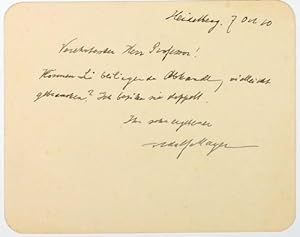 Heidelberg, 7 Oct 10
Verehrtester Herr Professor!
Können Sie beiliegende Abhandl. vielleicht
gebrauchen? Ich besitze sie doppelt.
Ihr sehr ergebener
Adolf Mayer